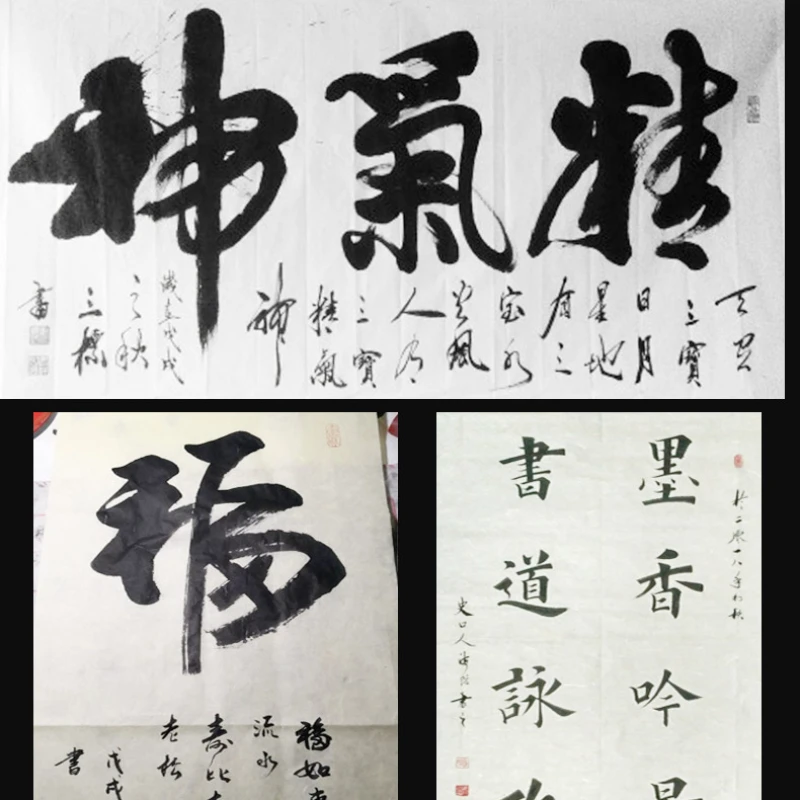 精氣神
天有
三寶
日月
星地
有三
宝水
火風
人有
三寶
精氣
神
歲在戊戌
之秋
三標
書
福
福如東
流水
寿比
老松
戊戌
書
於二零一八年初秋
墨香吟
書道詠
史口人